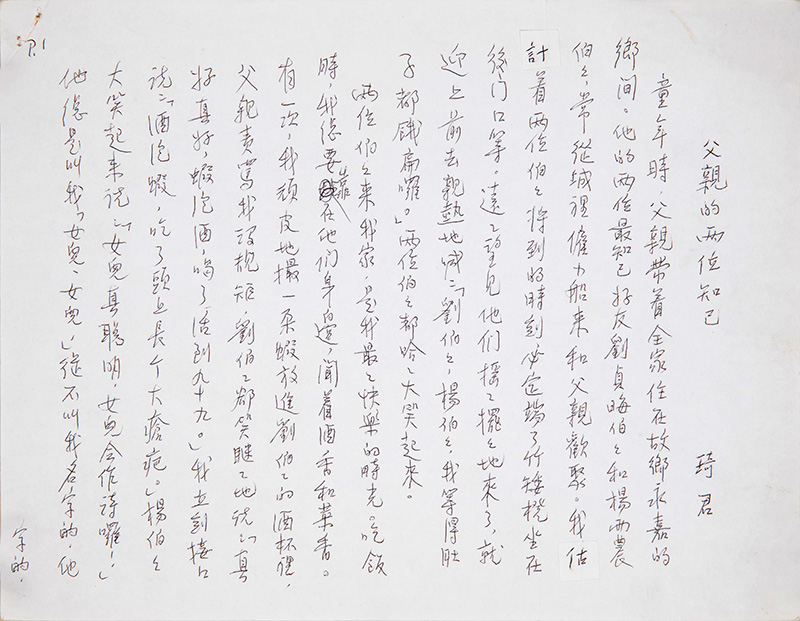 P.1
父親的兩位知己
琦君
童年時，父親帶着全家住在故鄉永嘉的
鄉間。他的兩位最知己好友劉貞晦伯々和楊雨農
伯々，常從城裡僱小船來和父親歡聚。我估
計着兩位伯々將到的時刻必定端了竹矮櫈坐在
後门口等。遠々望見他们搖々擺々地來了，就
迎上前去親熱地喊：「劉伯々，楊伯々，我等得肚
子都餓扁囉。」兩位伯々都哈々大笑起來。
兩位伯々來我家，是我最々快樂的時光。吃飯
時，我總要靠在他们身邊，聞着酒香和菜香。
有一次，我頑皮地撮一朵蝦放進劉伯々的酒杯裡，
父親責罵我沒規矩，劉伯々却笑瞇々地說：「真
好真好，蝦泡酒，喝了活到九十九。」我立刻接口
說：「酒泡蝦，吃了頭上長个大瘡疤。」楊伯々
大笑起來說：「女兒真聰明，女兒会作詩囉！」
他總是叫我「女兒、女兒」，從不叫我名字的，他
字的，